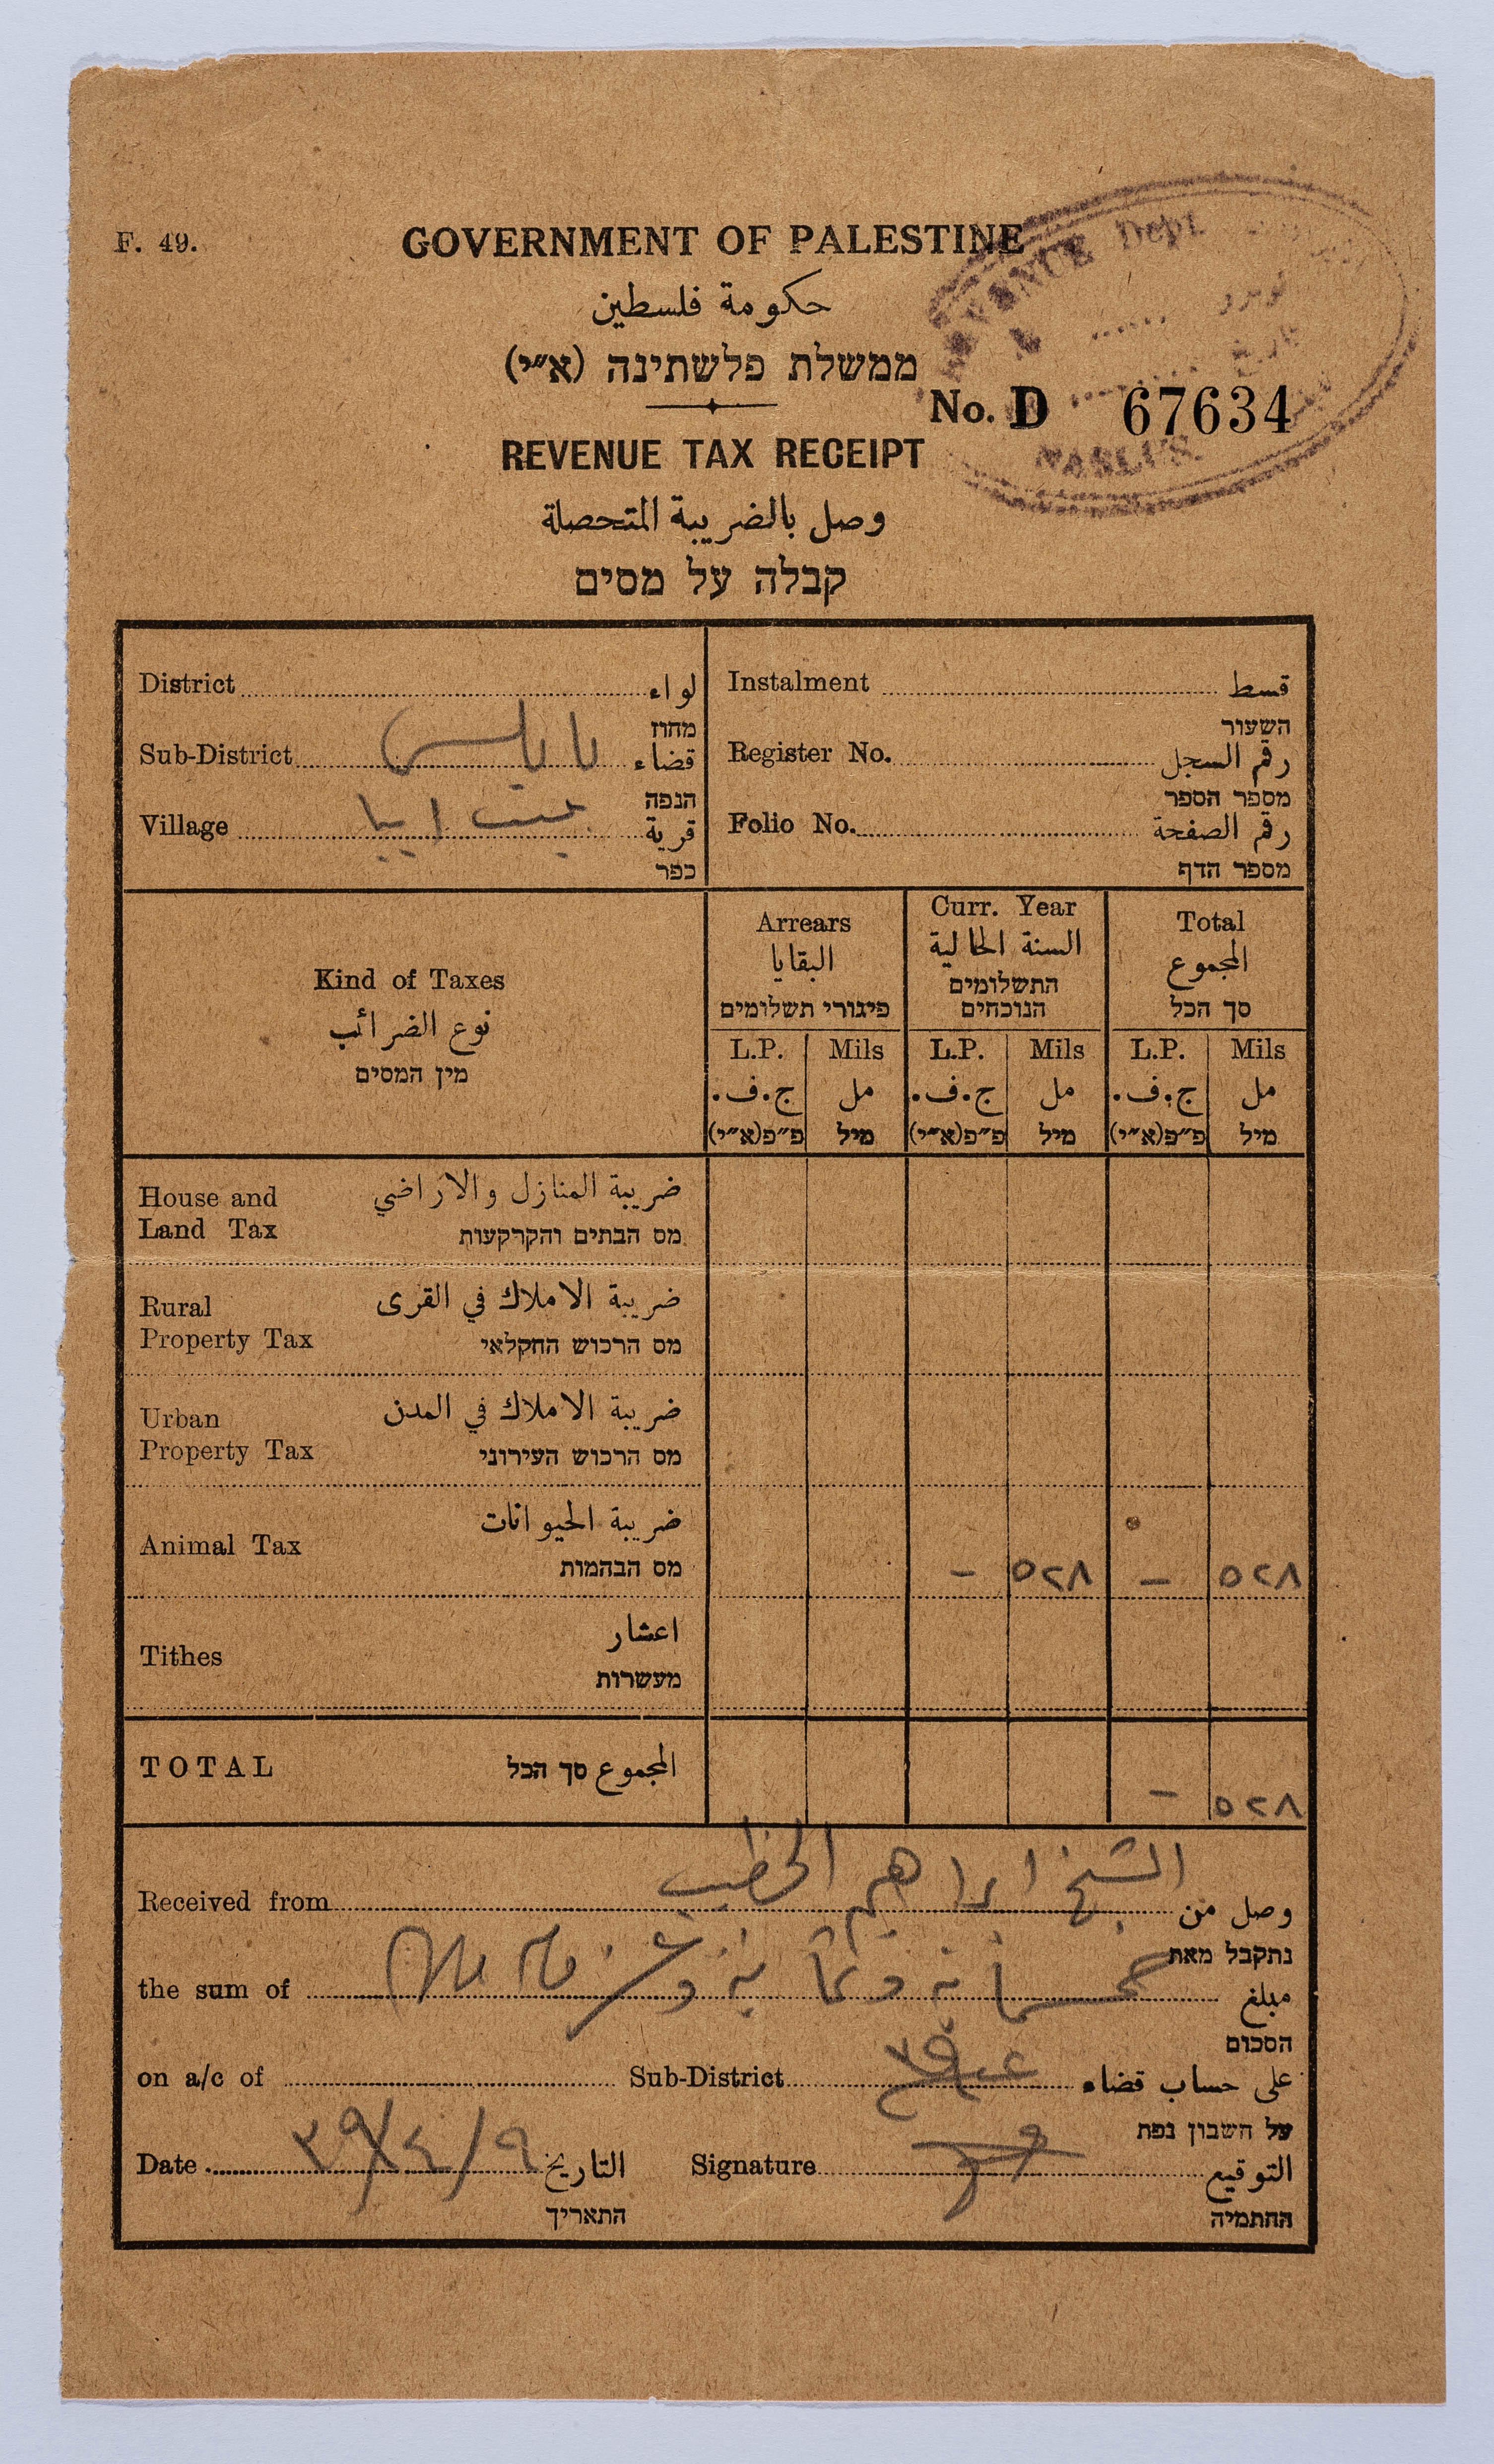 F. 49.
GOVERNMENT OF PALESTINE
حكومة فلسطين
ממשלת פלשתינה (א״י)
REVENUE Dept
NABLUS
No. D 67634
REVENUE TAX RECEIPT
وصل بالضريبة المتحصلة
קבלה על מסים
District لواء
מחוז
Sub-District نابلس قضاء
הנפה
Village بيت ايبا قرية
כפר
Instalment قسط
השעור
Register No. رقم السجل
מספר הספר
Folio No. رقم الصفحة
מספר הדף
Kind of Taxes
نوع الضرائب
מין המסים
Arrears
البقايا
פיגורי תשלומים
Curr. Year
السنة الحالية
התשלומים
הנוכחים
Total
المجموع
סך הכל
L.P. Mils L.P. Mils L.P. Mils
ج.ف. مل ج.ف. مل ج.ف. مل
פ״פ(א״י) מיל פ״פ(א״י) מיל פ״פ(א״י) מיל
House and
Land Tax
ضريبة المنازل والاراضي
מס הבתים והקרקעות
Rural
Property Tax
ضريبة الاملاك في القرى
מס הרכוש החקלאי
Urban
Property Tax
ضريبة الاملاك في المدن
מס הרכוש העירוני
Animal Tax
ضريبة الحيوانات
מס הבהמות
– ٥٢٨ – ٥٢٨
Tithes
اعشار
מעשרות
TOTAL المجموع סך הכל – ٥٢٨
Received from الشيخ ابراهيم الخطيب وصل من
נתקבל מאת
the sum of خمسمائة وثمانية وعشرون مبلغ
הסכום
on a/c of Sub-District على حساب قضاء
על חשבון נפת
Date ٩/٤/٣٩ التاريخ
התאריך
Signature التوقيع
החתמיה